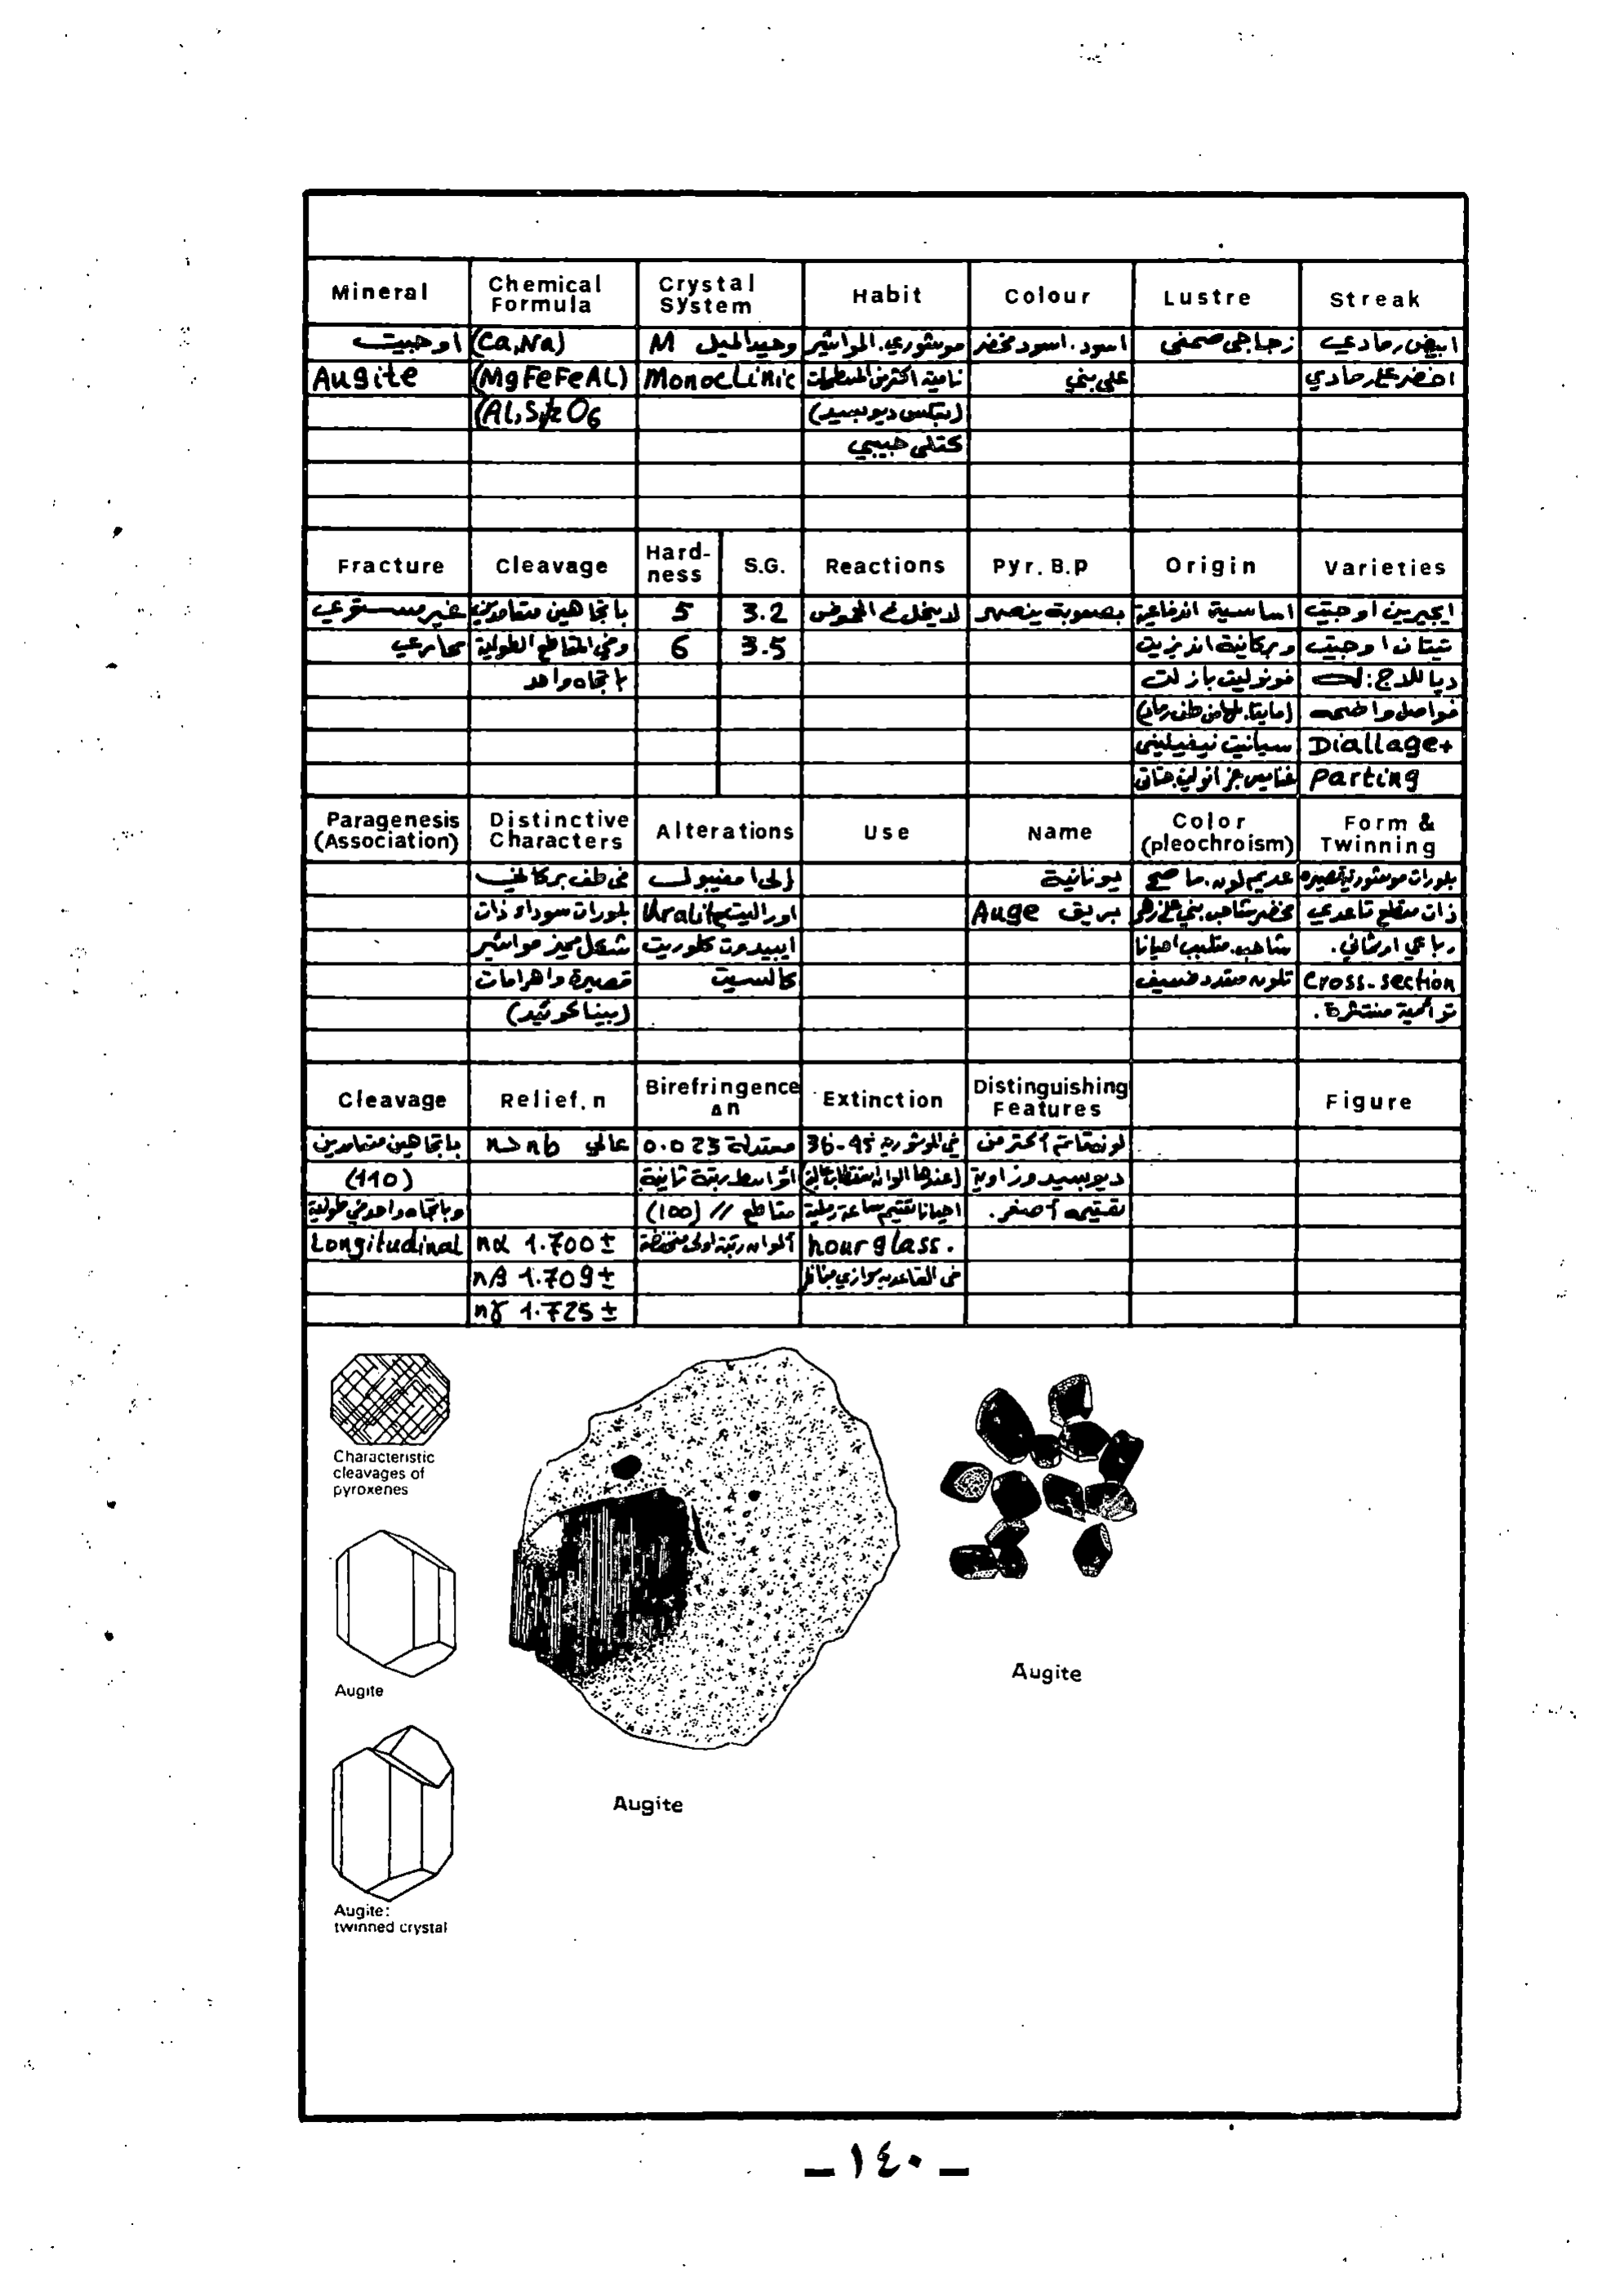 Mineral
Chemical Formula
Crystal System
Habit
Colour
Lustre
Streak
اوجيت (Ca,Na) وحيد الميل M موشوري. المواشير اسود. اسود مخضر زجاجي صمغي ابيض رمادي
Augite (MgFeFeAL) Monoclinic نامية اكثر من المسطحات على بني اخضر على رمادي
(Al,Si)2O6 (بعكس ديوبسيد)
كتلي حبيبي
Fracture
Cleavage
Hard-ness
S.G.
Reactions
Pyr. B.p
Origin
Varieties
غير مستوي باتجاهين متعامدين 5 3.2 لا ينحل في الحموض بصعوبة ينصهر اساسية اندفاعية ايجيرين اوجيت
محاري وفي المقاطع الطولية 6 3.5 وبركانية انديزيت تيتان اوجيت
باتجاه واحد فونوليت بازلت ديالاج:
فواصل واضحه
سيانيت نيفيليني Diallage+
Parting
Paragenesis (Association)
Distinctive Characters
Alterations
Use
Name
Color (pleochroism)
Form & Twinning
في طف بركاني إلى امفيبول يونانية عديم لون. بلورات موشورية قصيره
بلورات سوداء ذات اوراليت Uralit بريق Auge ذات مقطع قاعدي
شكل مميز مواشير ايبيدوت كلوريت رباعي او ثماني.
قصيرة واهرامات كالسيت تلونه متعدد ضعيف Cross-section
(بيناكوئيد) توأمية منتشرة.
Cleavage
Relief. n
Birefringence Δn
Extinction
Distinguishing Features
Figure
باتجاهين متعامدين عالي n>nb معتدلة 0.023 في الموشورية 36-45 لونه قاتم أكثر من
(110) أواسط رتبة ثانية ديوبسيد وزاوية
وباتجاه واحد في طولية مقاطع // (100) احيانا تقتيم ساعة رملية تقتيمه أصغر.
Longitudinal nα 1.700± ألوانه رتبة اولى منخفضة hourglass.
nβ 1.709±
nγ 1.725±
Characteristic
cleavages of
pyroxenes
Augite
Augite:
twinned crystal
Augite
Augite
_ ١٤٠ _